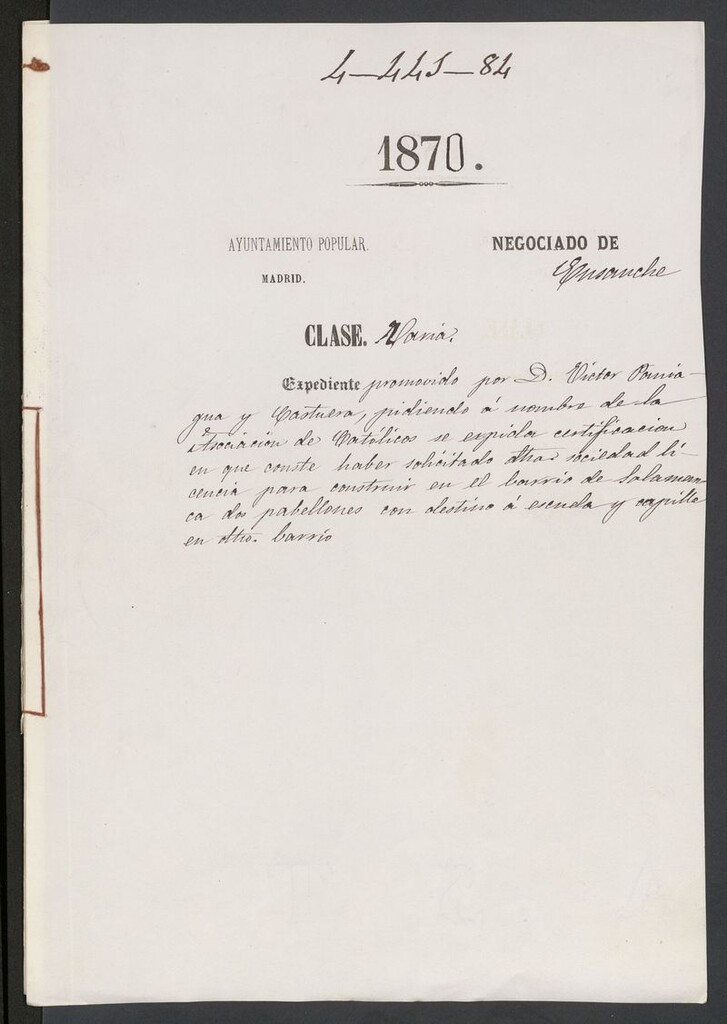 4-445-84
1870.
AYUNTAMIENTO POPULAR.
MADRID.
NEGOCIADO DE
Ensanche
CLASE. Varia.
Expediente promovido por D. Victor Pania-
gua y Castuera, pidiendo á nombre de la
Asociacion de Católicos se expida certificacion
en que conste haber solicitado dha sociedad li-
cencia para construir en el barrio de Salaman-
ca dos pabellones con destino á escuela y capilla
en dho. barrio